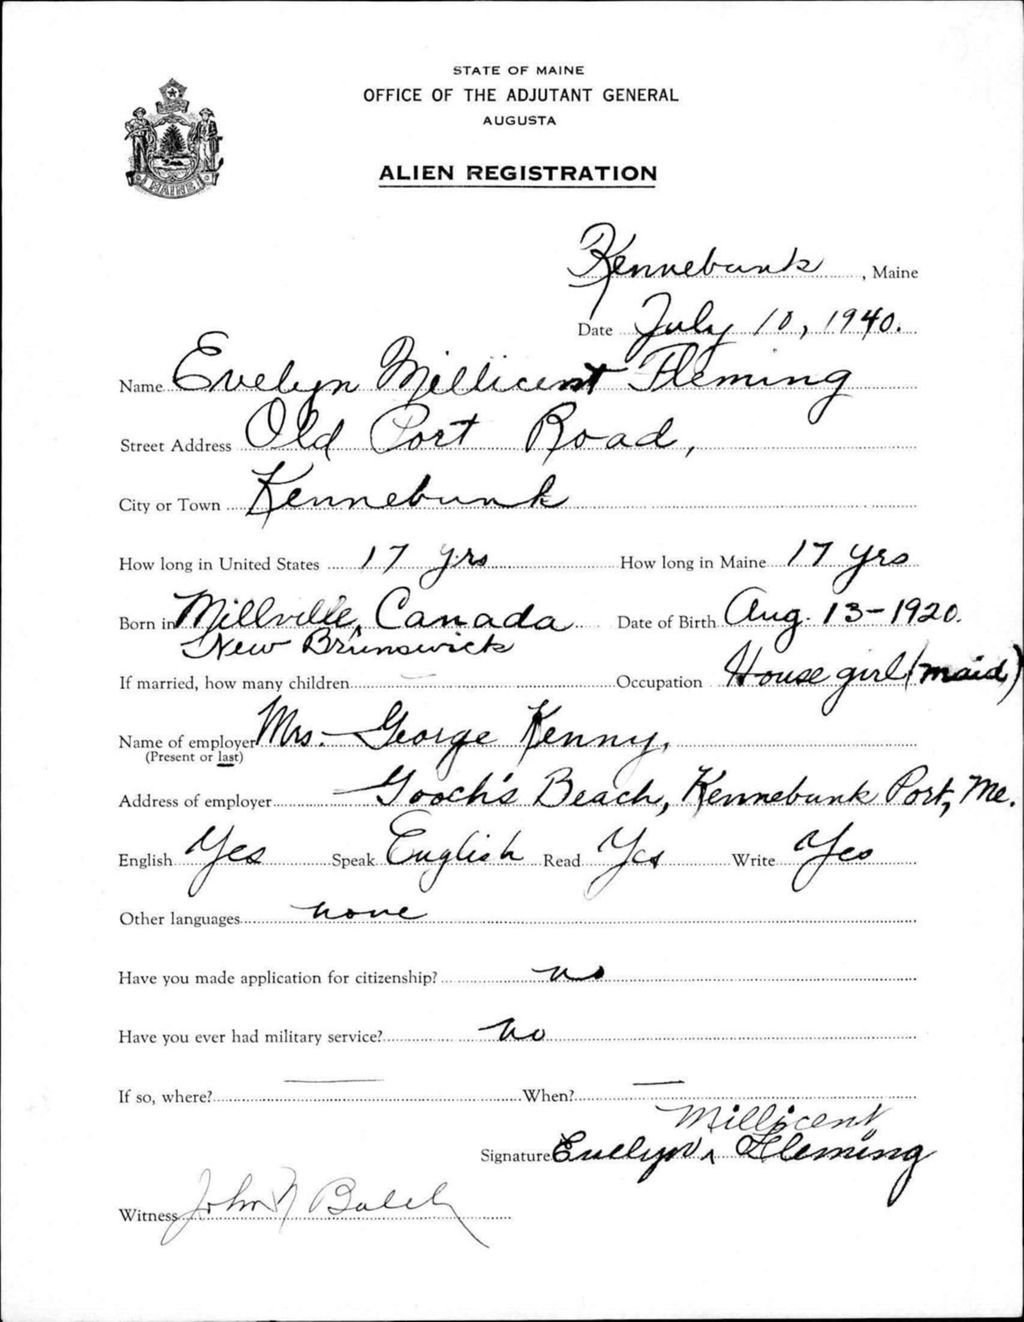 STATE OF MAINE
OFFICE OF THE ADJUTANT GENERAL
AUGUSTA
ALIEN REGISTRATION
MAINE
Kennebunk, Maine
Date July 10, 1940.
Name Evelyn Millicent Fleming
Street Address Old Port Road,
City or Town Kennebunk
How long in United States 17 yrs How long in Maine 17 yrs
Born in Millville, Canada Date of Birth Aug. 13-1920.
New Brunswick
If married, how many children — Occupation House girl (maid)
Name of employer Mrs. George Kenny,
(Present or last)
Address of employer Gooch's Beach, Kennebunk Port, Me.
English Yes Speak English Read Yes Write Yes
Other languages none
Have you made application for citizenship? no
Have you ever had military service? no
If so, where? — When? —
Millicent
Signature Evelyn ^ Fleming
Witness John N Balch